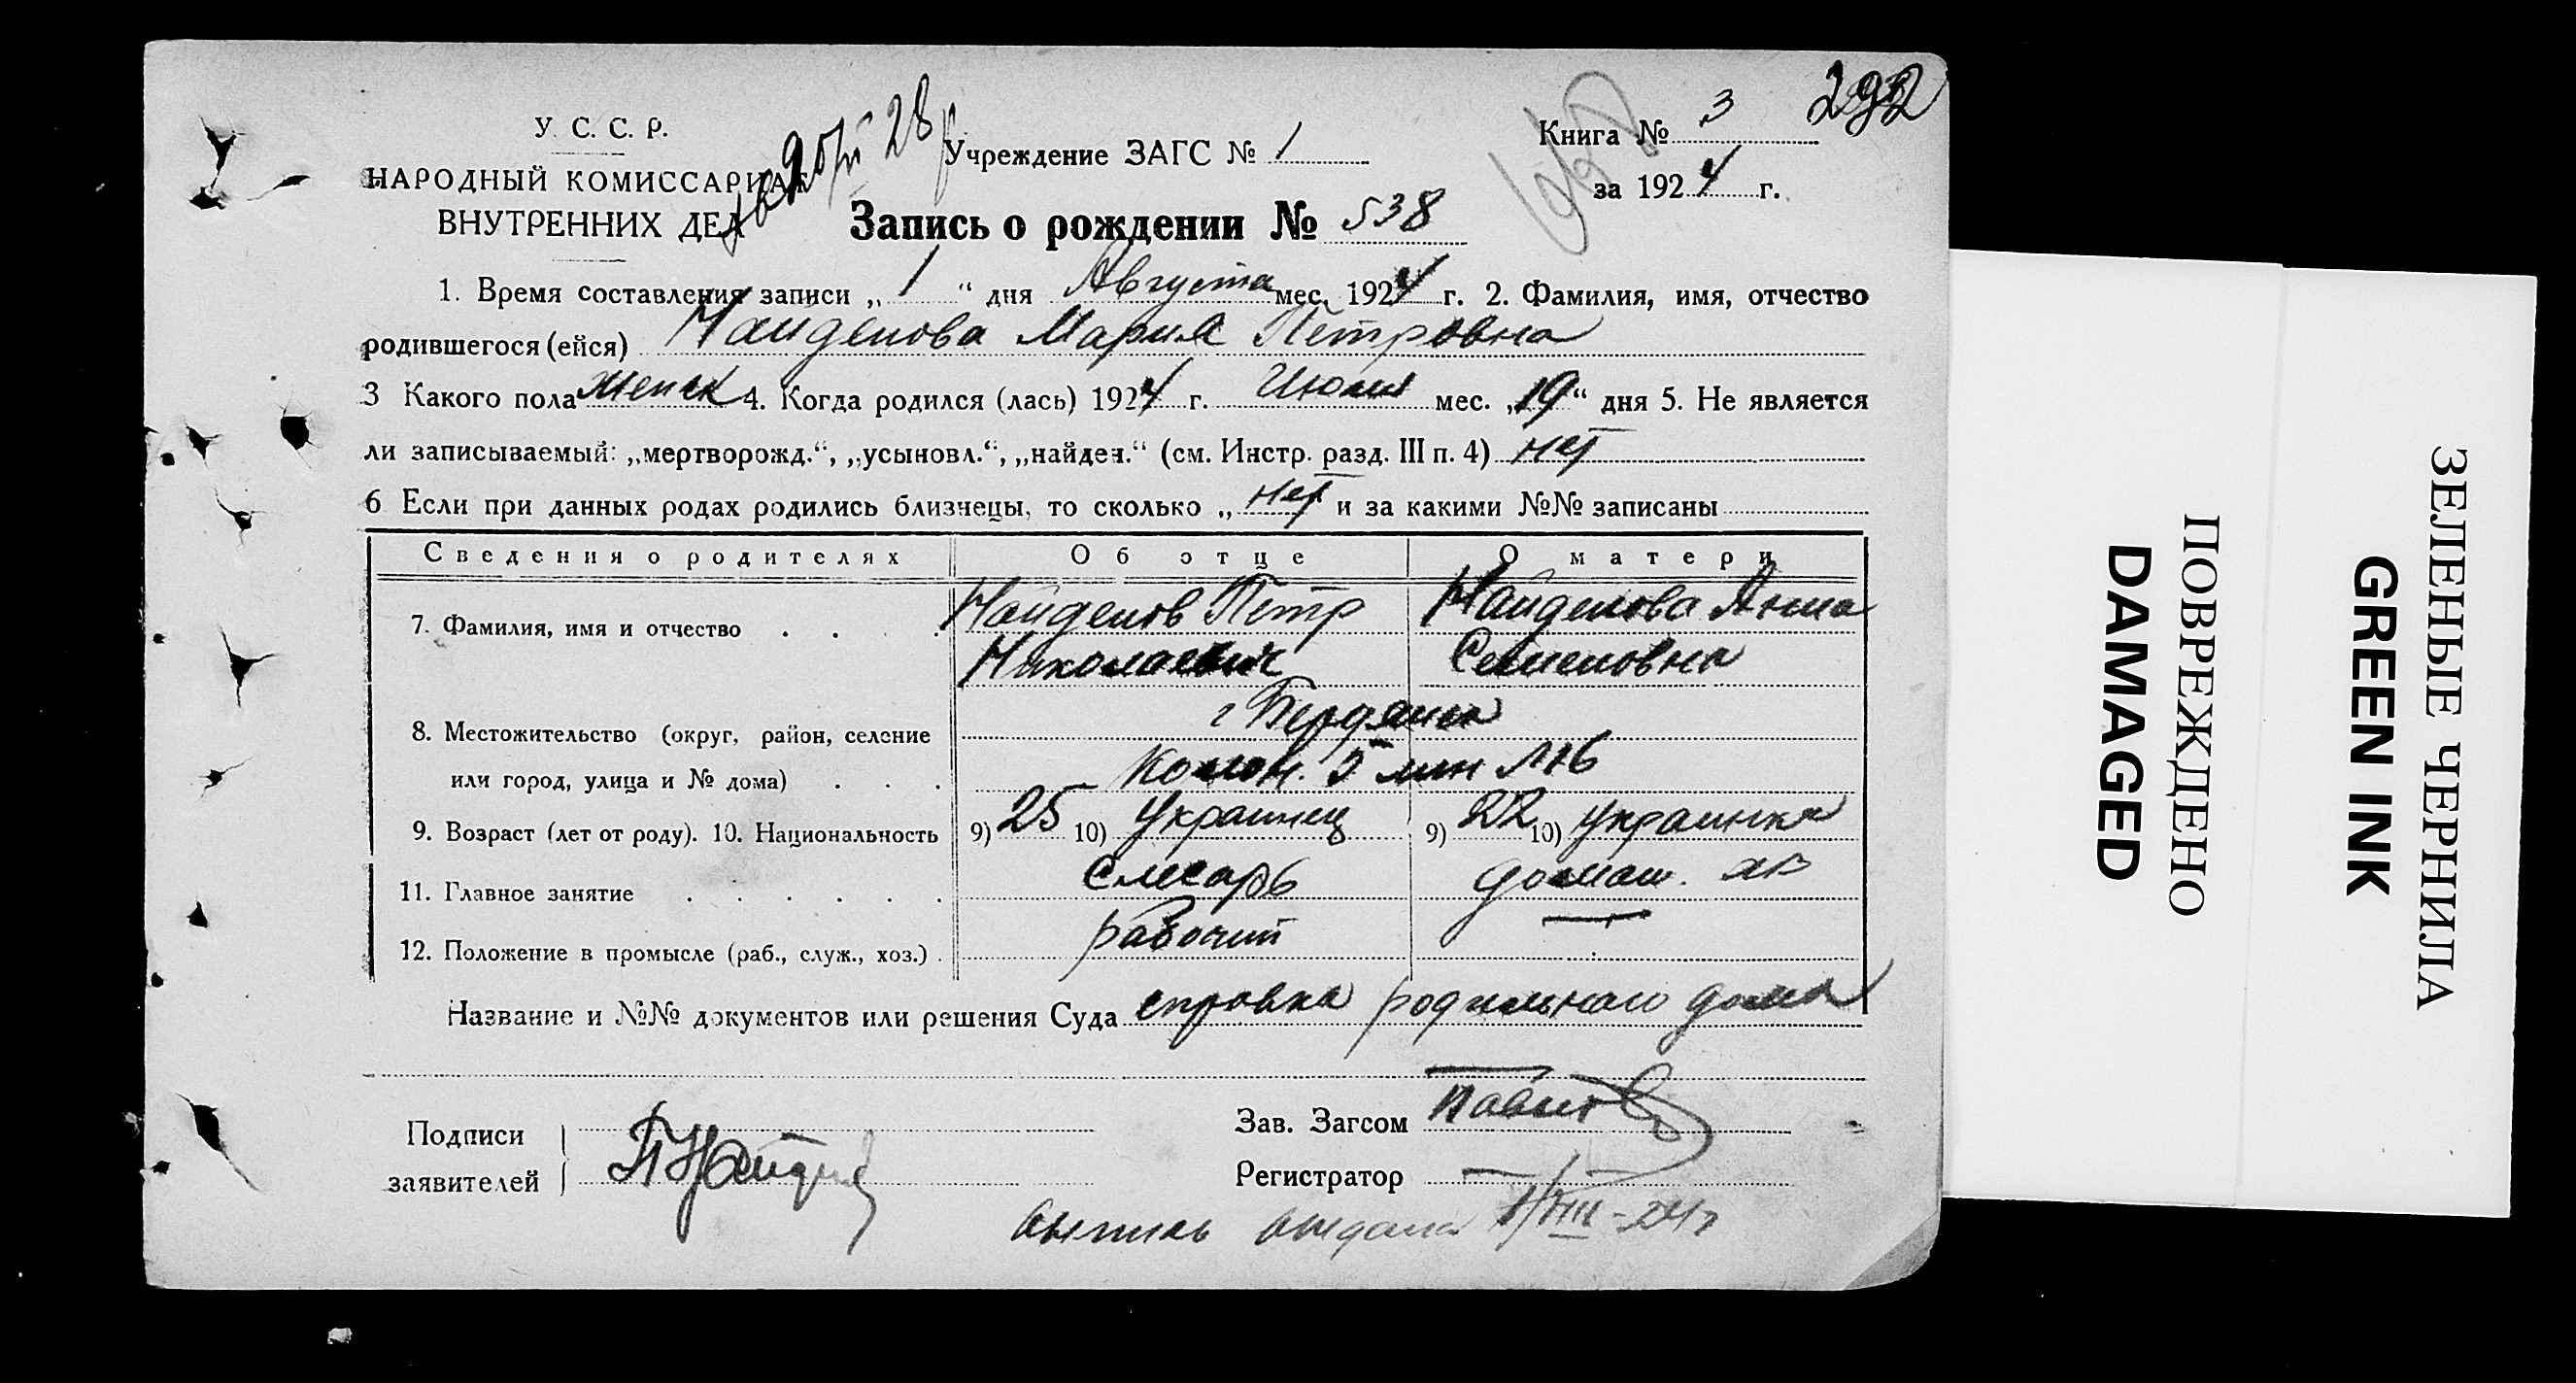 292
У. С. С. Р.
НАРОДНЫЙ КОМИССАРИАТ
ВНУТРЕННИХ ДЕЛ
28
Учреждение ЗАГС № 1
Книга № 3
за 1924 г.
Запись о рождении № 538
1. Время составления записи „ 1 “ дня Августа мес. 1924 г. 2. Фамилия, имя, отчество
родившегося (ейся) Найденова Мария Петровна
3 Какого пола женск 4. Когда родился (лась) 1924 г. Июля мес. „19“ дня 5. Не является
ли записываемый: „мертворожд.“, „усыновл.“, „найден.“ (см. Инстр. разд. III п. 4) нет
6 Если при данных родах родились близнецы, то сколько „ нет и за какими №№ записаны
Сведения о родителях Об отце О матери
7. Фамилия, имя и отчество . . . . Найденов Петр Николаевич Найденова Анна Семеновна
8. Местожительство (округ, район, селение
или город, улица и № дома) . . . г Бердянск
Колон. 5 лин №6
9. Возраст (лет от роду). 10. Национальность 9) 25 10) Украинец 9) 22 10) украинка
11. Главное занятие . . . . . . Слесарь домаш. хв
12. Положение в промысле (раб., служ., хоз.) . рабочий —
Название и №№ документов или решения Суда справка родильного дома
Подписи
заявителей
Зав. Загсом
Регистратор
выпись выдана 1/VIII-24 г
ПОВРЕЖДЕНО
DAMAGED
ЗЕЛЕНЫЕ ЧЕРНИЛА
GREEN INK